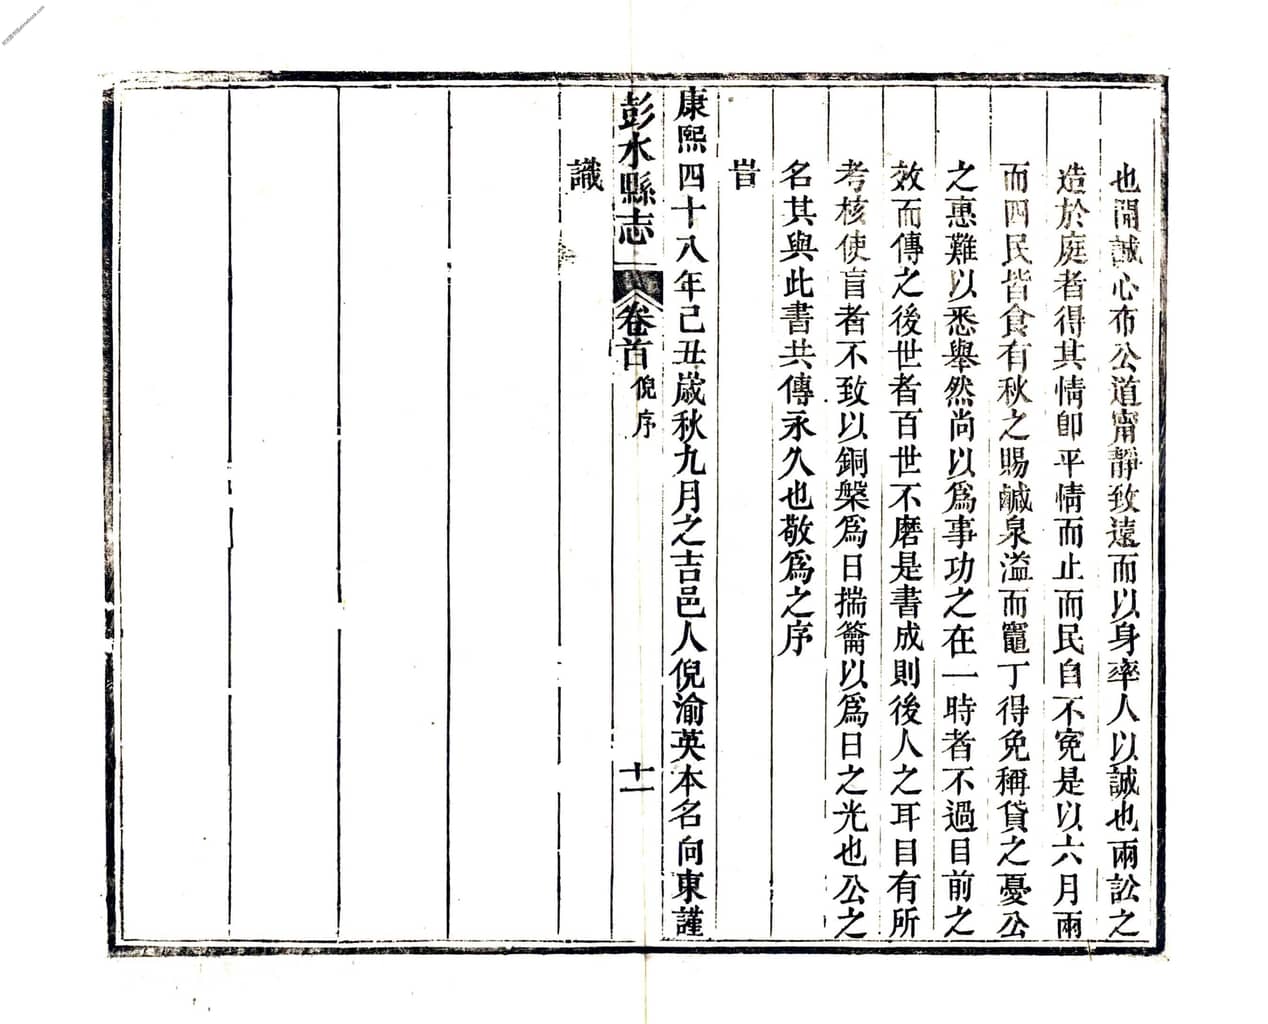 也開誠心布公道甯靜致遠而以身率人以誠也兩訟之
造於庭者得其情卽平情而止而民自不寃是以六月雨
而四民皆食有秋之賜鹹泉溢而竈丁得免稱貸之憂公
之惠難以悉舉然尚以爲事功之在一時者不過目前之
效而傳之後世者百世不磨是書成則後人之耳目有所
考核使盲者不致以銅槃爲日揣籥以爲日之光也公之
名其與此書共傳永久也敬爲之序
旹
康熙四十八年己丑歲秋九月之吉邑人倪渝英本名向東謹
彭水縣志 卷首 倪序 十一
識